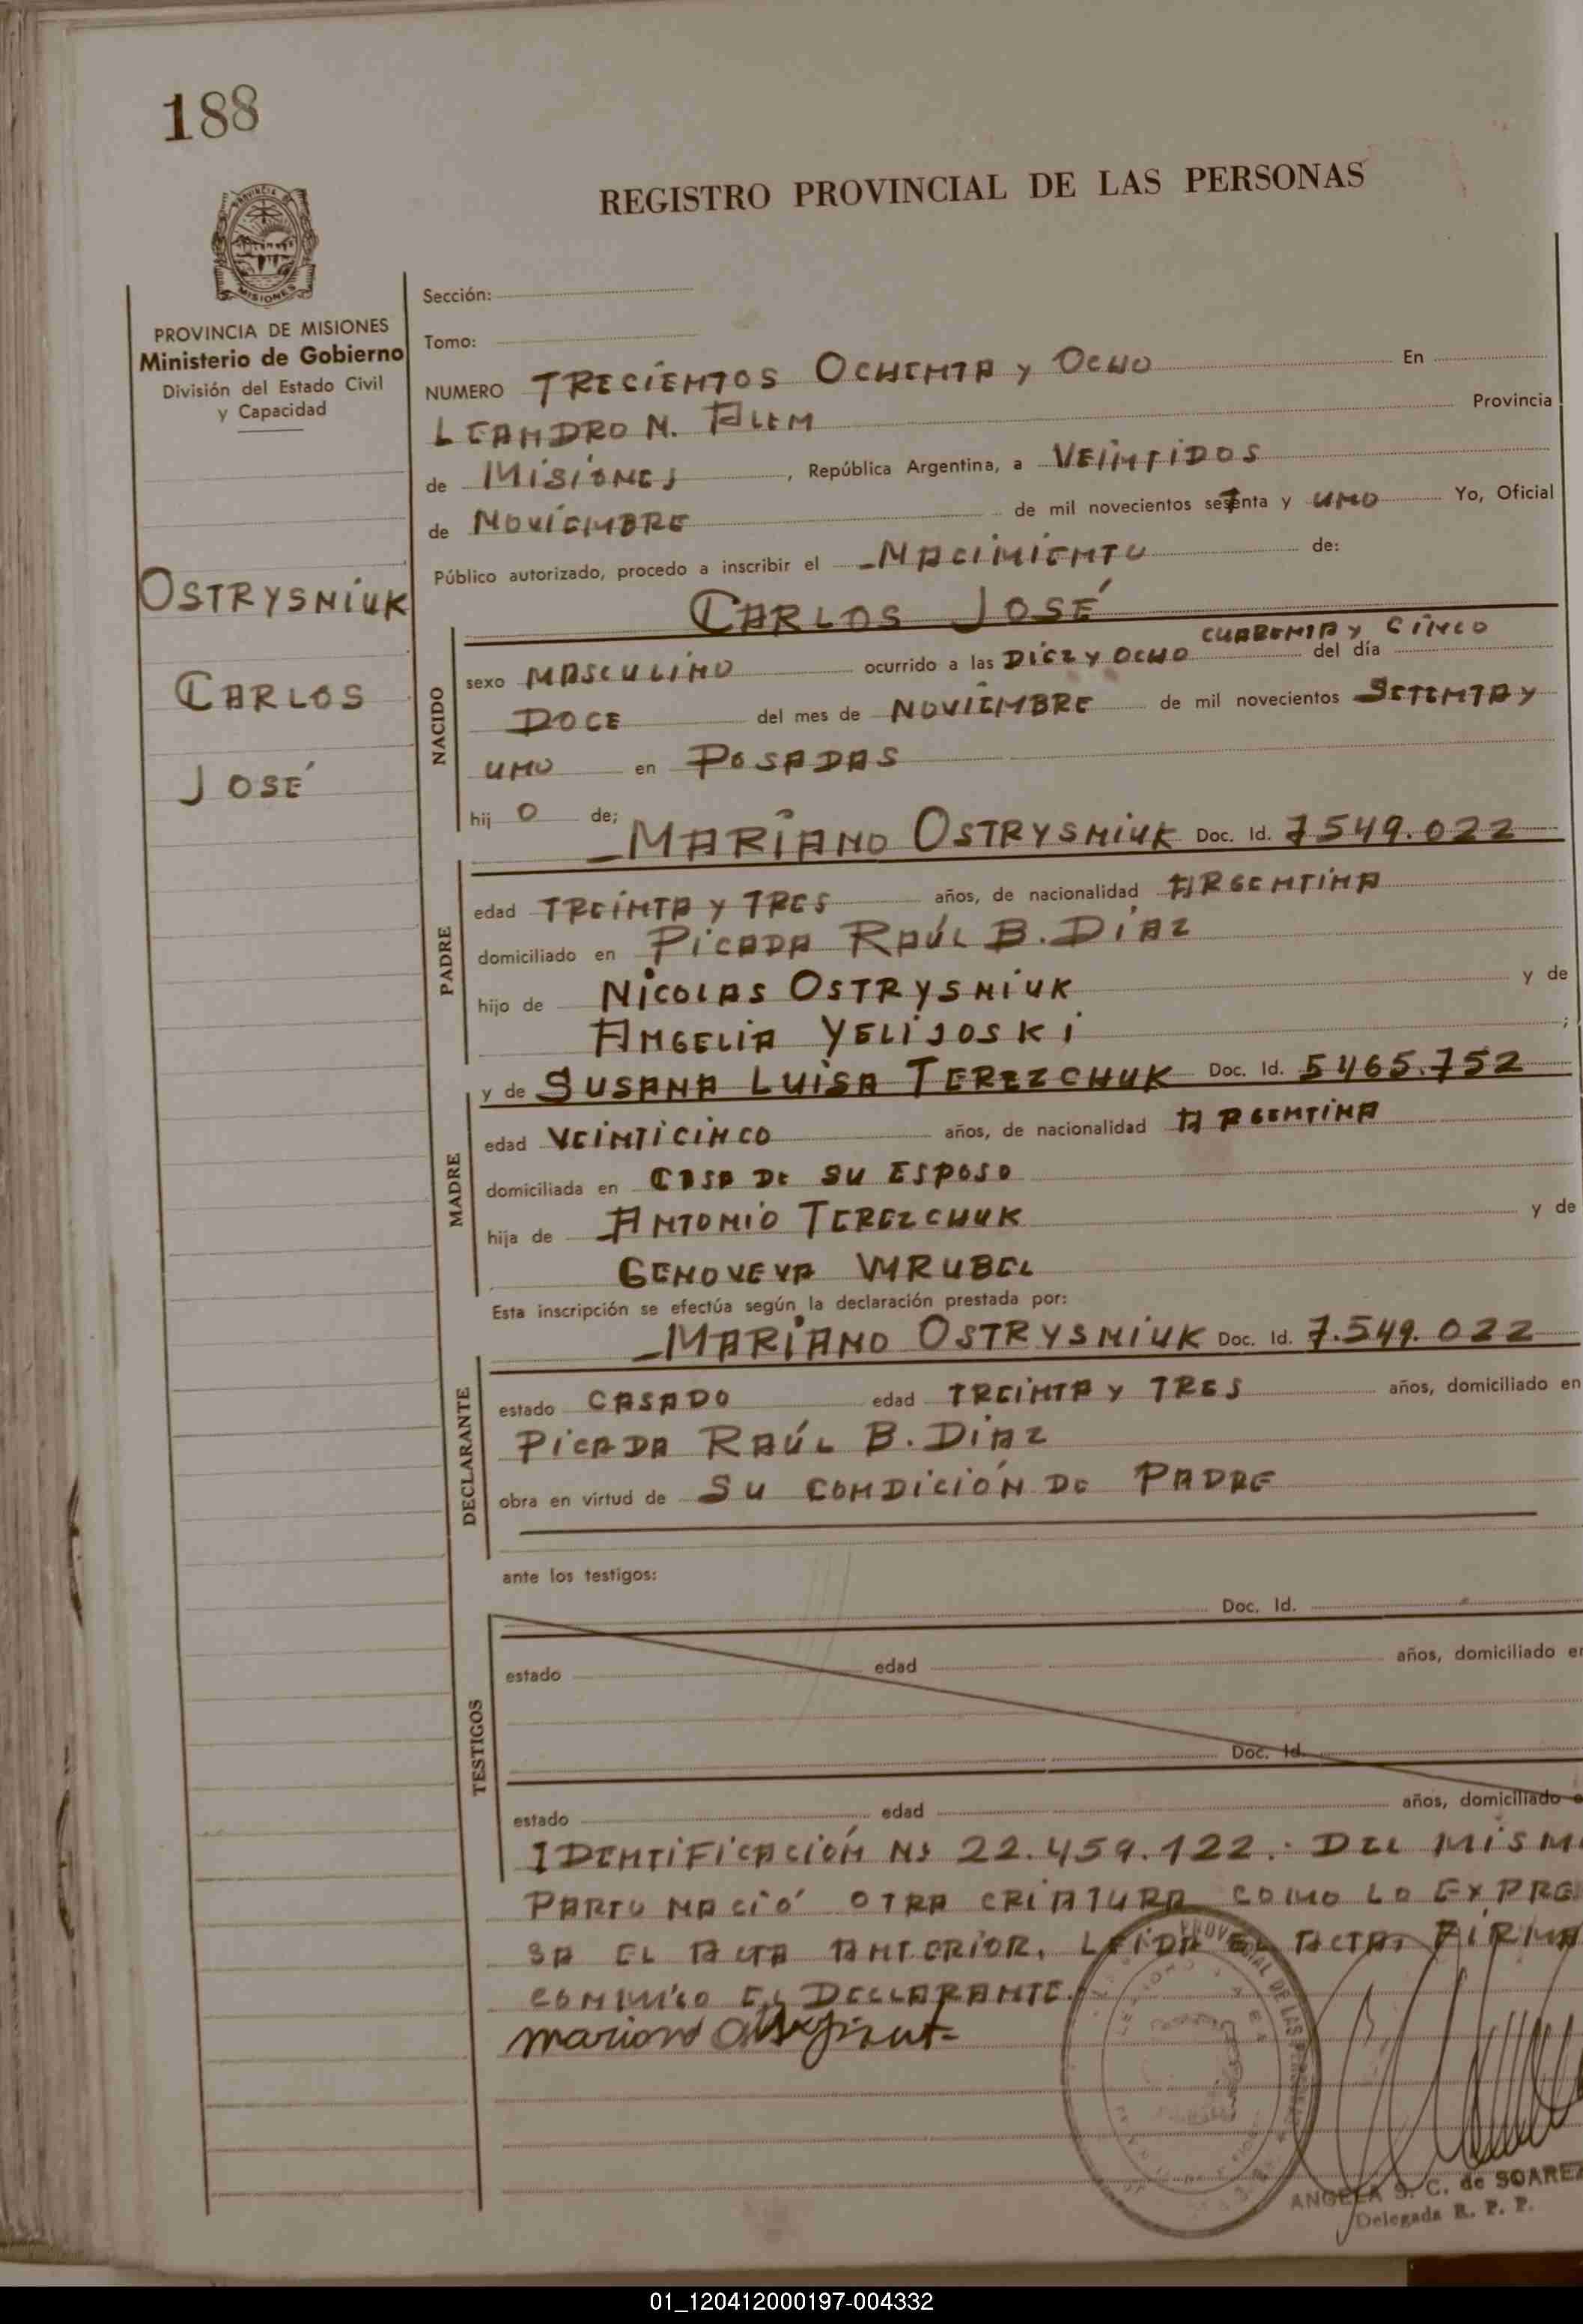 188
REGISTRO PROVINCIAL DE LAS PERSONAS
PROVINCIA DE MISIONES
Ministerio de Gobierno
División del Estado Civil
y Capacidad
OSTRYSNIUK
CARLOS
JOSÉ
Sección:
Tomo:
NUMERO TRECIENTOS OCHENTA Y OCHO En
LEANDRO N. ALEM Provincia
de MISIONES, República Argentina, a VEINTIDOS
de NOVIEMBRE de mil novecientos setenta y UNO Yo, Oficial
Público autorizado, procedo a inscribir el NACIMIENTO de:
CARLOS JOSÉ
NACIDO
CUARENTA Y CINCO
sexo MASCULINO ocurrido a las DIEZ Y OCHO del día
DOCE del mes de NOVIEMBRE de mil novecientos SETENTA Y
UNO en POSADAS
hij O de;
MARIANO OSTRYSNIUK Doc. Id. 7549.022
PADRE
edad TREINTA Y TRES años, de nacionalidad ARGENTINA
domiciliado en PICADA RAÚL B. DIAZ
hijo de NICOLAS OSTRYSNIUK y de
ANGELIA YELIJOSKI ;
y de SUSANA LUISA TEREZCHUK Doc. Id. 5465.752
MADRE
edad VEINTICINCO años, de nacionalidad ARGENTINA
domiciliada en CASA DE SU ESPOSO
hija de ANTONIO TEREZCHUK y de
GENOVEVA WRUBEL
Esta inscripción se efectúa según la declaración prestada por:
MARIANO OSTRYSNIUK Doc. Id. 7.549.022
DECLARANTE
estado CASADO edad TREINTA Y TRES años, domiciliado en
PICADA RAÚL B. DIAZ
obra en virtud de SU CONDICIÓN DE PADRE
ante los testigos:
TESTIGOS
Doc. Id.
estado edad años, domiciliado en
Doc. Id.
estado edad años, domiciliado e
IDENTIFICACIÓN Nº 22.459.122.- DEL MISM
PARTO NACIÓ OTRA CRIATURA COMO LO EXPRE
SA EL ACTA ANTERIOR. LEIDA EL ACTA, FIRMA
CONMIGO EL DECLARANTE.
ANGELA S. C. de SOAREZ
Delegada R. P. P.
01_120412000197-004332